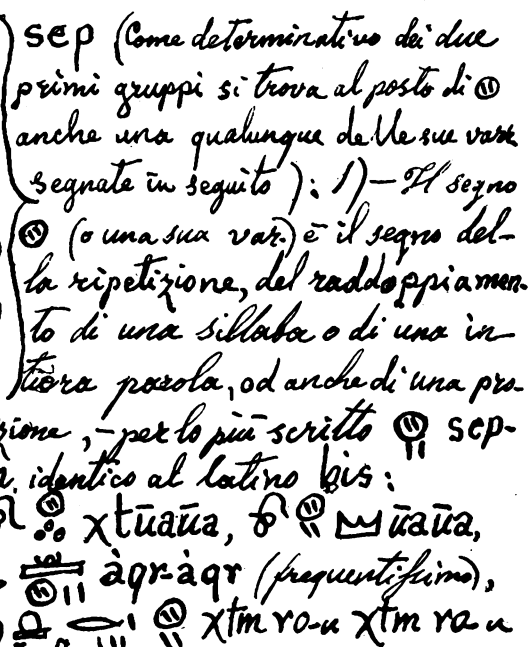 sep (Come determinativo dei due
primi gruppi si trova al posto di 𓊗
anche una qualunque delle sue var.
segnate in seguito): 1) — Il segno
𓊗 (o una sua var.) è il segno del-
la ripetizione, del raddoppiamen-
to di una sillaba o di una in-
tiera parola, od anche di una pro-
zione, — per lo più scritto 𓊗 sep-
identico al latino bis:
χtūaūa, ūaūa,
àqr-àqr (frequentissimo),
χtm ro-u χtm ro-u